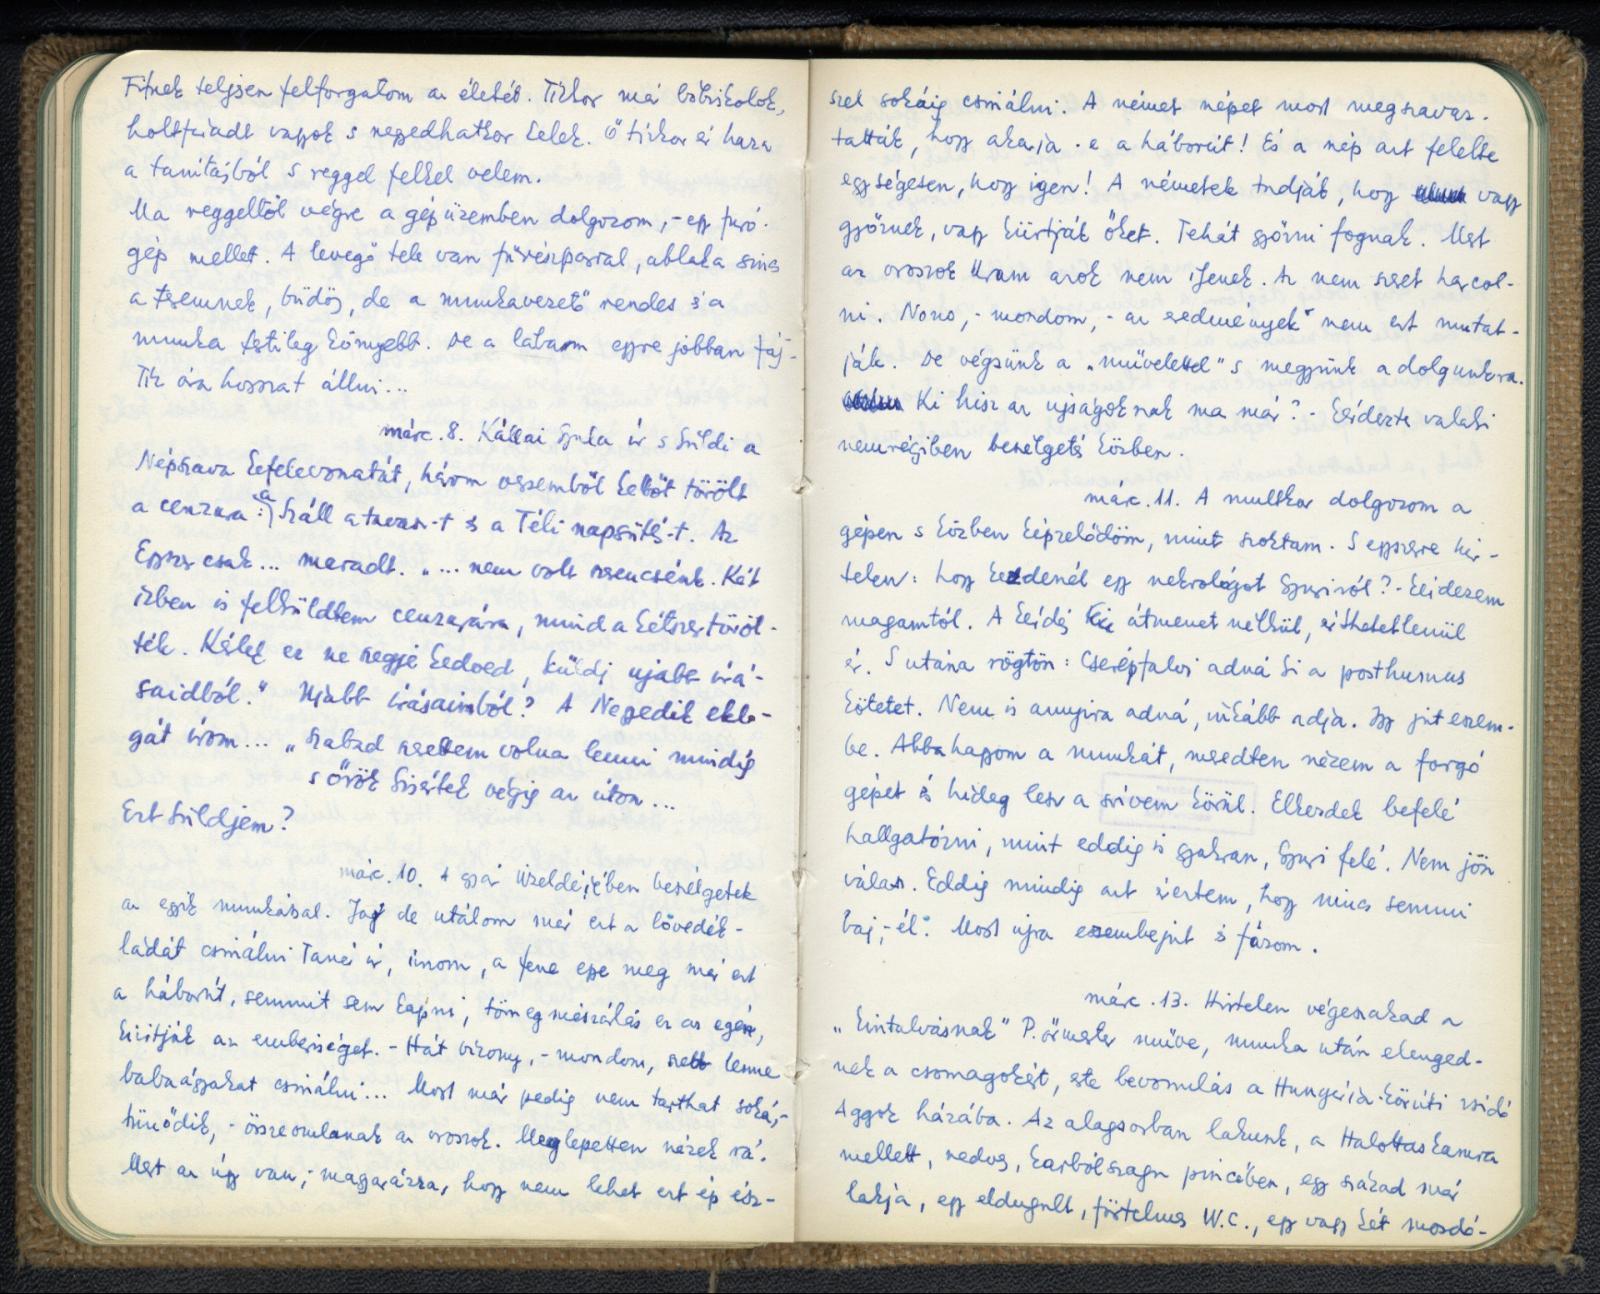 Fifnek teljsen felforgatom az életét. Tízkor má bóbiskolok,
holtfáradt vagyok s negyedhatkor kelek. Ő tízkor ér haza
a tanításból s reggel felkel velem.
Ma reggeltől végre a gépüzemben dolgozom, - egy fúró-
gép mellet. A levegő tele van fűrészporral, ablaka sincs
a teremnek, büdös, de a munkavezető rendes s a
munka testileg könnyebb. De a lábam egyre jobban fáj.
Tíz óra hosszat állni...
márc. 8. Kállai Gyula ír s küldi a
Népszava kefelevonatát, három versemből kettőt törölt
a cenzura: a Száll a tavasz-t és a Téli napsütés-t. Az
Egyszer csak... maradt. „... nem volt szerencsénk. Két
ízben is felküldtem cenzurára, mind a kétszer töröl-
ték. Kérlek ez ne szegje kedved, küldj ujabb írá-
saidból." Ujabb írásaimból? A Negyedik eklo-
gát írom... „Szabad szerettem volna lenni mindig
s őrök kisértek végig az úton...
Ezt küldjem?
márc. 10. A gyár üzeldéjében beszélgetek
az egyik munkással. Jaj de utálom már ezt a lövedék-
ládát csinálni Tanár úr, únom, a fene egye meg már ezt
a háborút, semmit sem kapni, tömegmészárlás ez az egész,
kiirtják az emberiséget. - Hát bizony, - mondom, szebb lenne
babaágyakat csinálni... Most már pedig nem tarthat soká, -
tünődik, - összeomlanak az oroszok. Meglepetten nézek rá.
Mert az úgy van, magyarázza, hogy nem lehet ezt ép ész-
szel sokáig csinálni. A német népet most megszavaz-
tatták, hogy akarja-e a háborút! És a nép azt felelte
egységesen, hogy igen! A németek tudják, hogy vagy
győznek, vagy kiirtják őket. Tehát győzni fognak. Mert
az oroszok Uram azok nem ijenek. Az nem szeret harcol-
ni. Nono, - mondom, - az eredmények nem ezt mutat-
ják. De végzünk a „művelettel" s megyünk a dolgunkra.
Ki hisz az ujságoknak ma már? - kérdezte valaki
nemrégiben beszélgetés közben.
márc. 11. A multkor dolgozom a
gépen s közben képzelődöm, mint szoktam. S egyszerre hir-
telen: hogy kezdenél egy nekrológot Gyuriról? - kérdezem
magamtól. A kérdés átmenet nélkül, érthetetlenül
ér. S utána rögtön: Cserépfalvi adná ki a posthumus
kötetet. Nem is annyira adná, inkább adja. Igy jut eszem-
be. Abbahagyom a munkát, meredten nézem a forgó
gépet és hideg lesz a szívem körül. Elkezdek befelé
hallgatózni, mint eddig is gyakran, Gyuri felé. Nem jön
válasz. Eddig mindig azt éreztem, hogy nincs semmi
baj, - él. Most ujra eszembejut és fázom.
márc. 13. Hirtelen végeszakad a
„kintalvásnak" P. őrmester műve, munka után elenged-
nek a csomagokért, este bevonulás a Hungária-körúti zsidó
Aggok házába. Az alagsorban lakunk, a Halottaskamra
mellett, nedves, karbólszagu pincében, egy század már
lakja, egy eldugult, förtelmes W.C., egy vagy két mosdó-